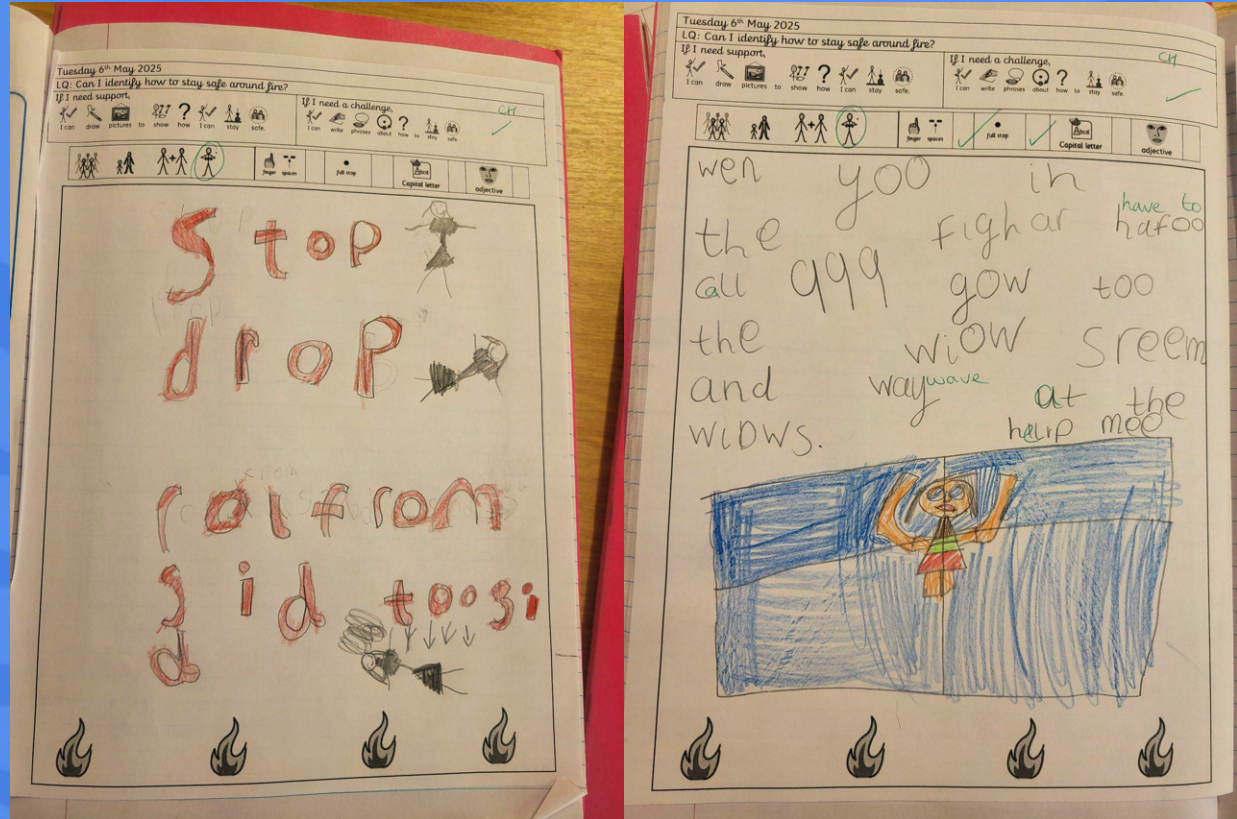 Tuesday 6th May 2025
LQ: Can I identify how to stay safe around fire?
If I need support,
I can draw pictures to show how I can stay safe.
If I need a challenge,
I can write phrases about how to stay safe.
CH
finger spaces
full stop
Capital letter
adjective
Stop
drop
rol from
sid too si
d
Tuesday 6th May 2025
LQ: Can I identify how to stay safe around fire?
If I need support,
I can draw pictures to show how I can stay safe.
If I need a challenge,
I can write phrases about how to stay safe.
CH
finger spaces
full stop
Capital letter
adjective
wen yoo in
have to
the fighar hafoo
call 999 gow too
the wiow sreem
and way wave at the
wiDws. helrp mee